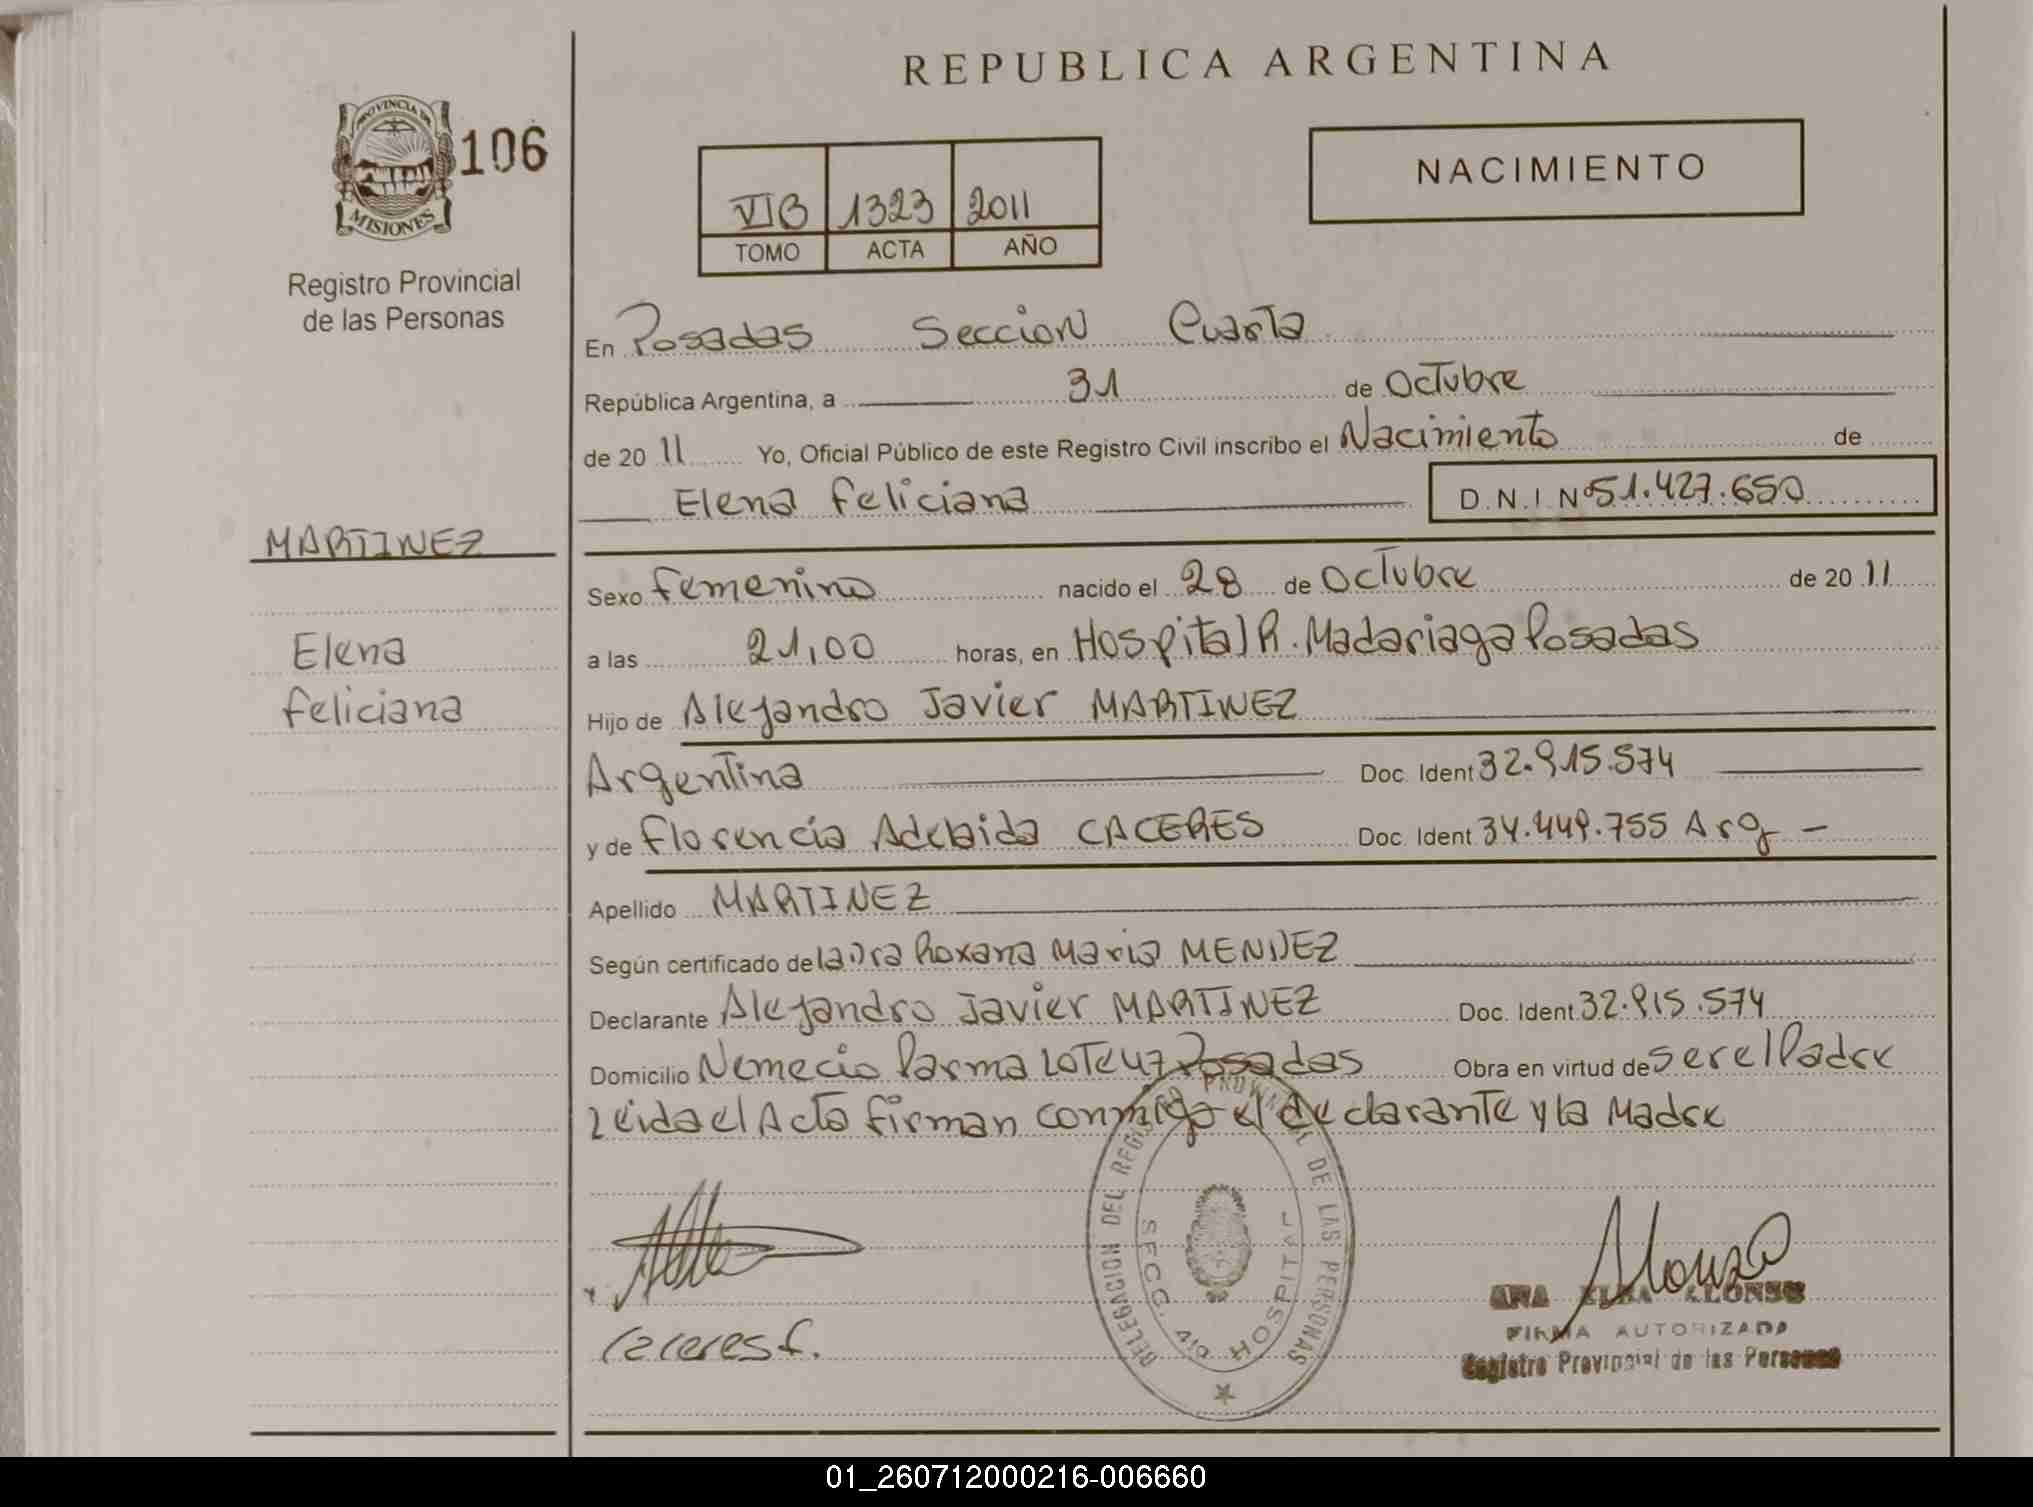 REPUBLICA ARGENTINA
PROVINCIA DE
MISIONES
106
Registro Provincial
de las Personas
VIB 1323 2011
TOMO ACTA AÑO
NACIMIENTO
En Posadas Seccion Cuarta
República Argentina, a 31 de Octubre
de 20 11 Yo, Oficial Público de este Registro Civil inscribo el Nacimiento de
Elena Feliciana D.N.I Nº 51.427.650
MARTINEZ
Elena
Feliciana
Sexo Femenino nacido el 28 de Octubre de 20 11
a las 21,00 horas, en Hospital R. Madariaga Posadas
Hijo de Alejandro Javier MARTINEZ
Argentina Doc. Ident 32.915.574
y de Florencia Adelaida CACERES Doc. Ident 34.449.755 Arg -
Apellido MARTINEZ
Según certificado de laura Roxana Maria MENDEZ
Declarante Alejandro Javier MARTINEZ Doc. Ident. 32.915.574
Domicilio Nemecio Parma LOTE 47 Posadas Obra en virtud de ser el Padre
Leida el Acta firman conmigo el declarante y la Madre
DELEGACION DEL REGISTRO PROVINCIAL DE LAS PERSONAS
SECC. 4ta HOSPITAL
Caceres f.
Alonzo
ANA ELBA ALONSO
FIRMA AUTORIZADA
Registro Provincial de las Personas
01_260712000216-006660